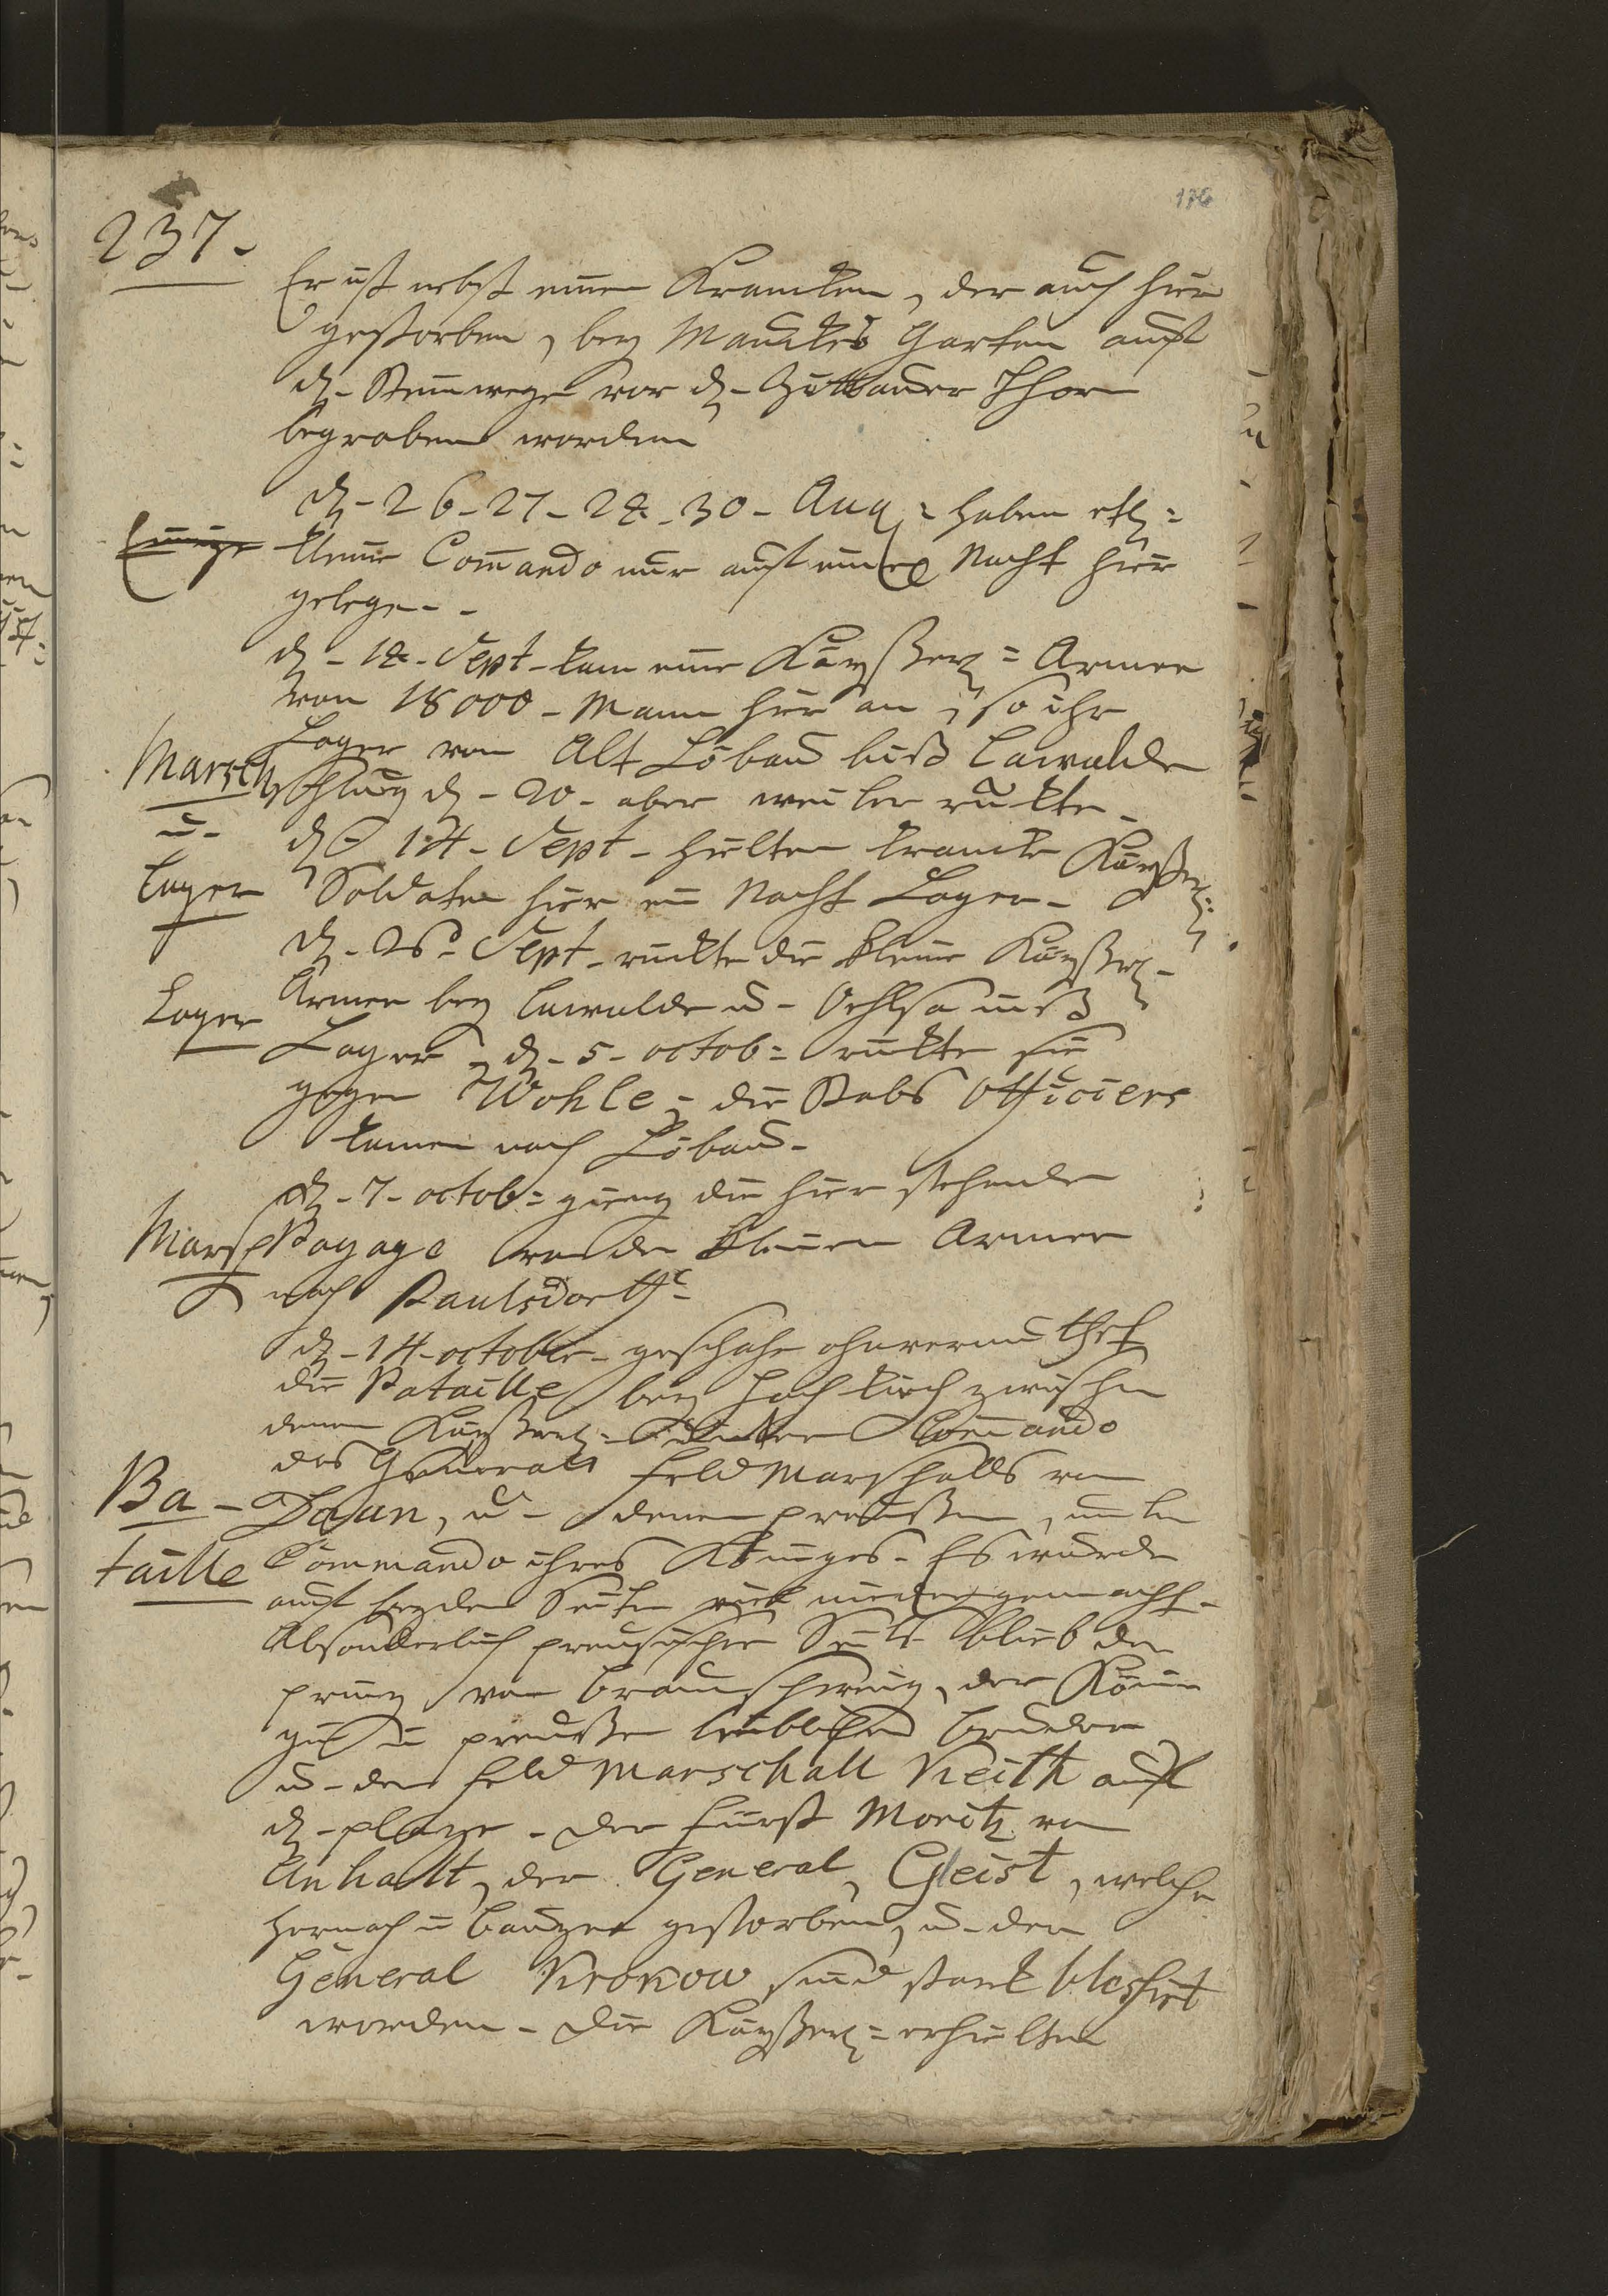 176
237.
Er ist nebst einen Krancken, der auch hier
gestorben, bey Mauckes Garten auf
d. Steinwege vor d. Zittauer Thore
begraben worden
d. 26. 27. 28. 30. Aug: haben etl:
kleine Com̄ando nur auf eine Nacht hier
gelegen.
d. 18. Sept. kam eine Kayßerl: Armee
von 18000 Mann hier an, so ihr
Marsch
Lager von Alt Löbau biß Lawalde
schlug d. 20. aber weiter rückte.
u.
d. 14. Sept. hielten krancke Kayßerl:
Lager
Soldaten hier ein Nacht Lager.
d. 26. Sept. rückte die kleine Kayßerl.
Lager
Armee bey Lawalde u. Oehlsa inß
Lager, d. 5. octob: rückte sie
gegen Wohle, die Stabs Officiers
kamen nach Löbau.
d. 7. octob: gieng die hier stehende
Marsch
Bagage von der kleinen Armee
nach Paulsdorff.
d. 14. october geschahe ohnvermuthet
die Bataille bey Hochkirch zwischen
denen Kayßerl: unter Com̄ando
des Generals Feld Marschalls von
Ba-
Daun, u. denen preußen, unter
taille
Commando ihres Königes. Es wurde
auf beyden Seiten viel niedergemacht.
Absonderlich preusischer Seits blieb der
prinz von Braunschweig, der Köni
gin in preußen leiblicher Bruder
u. der Feld Marschall Keith auf
d. plaze. Der Fürst Moritz von
Anhalt, der General, Geist, welcher
hernach in Bauzen gestorben, u. der
General Krokow sind starck blessirt
worden. Die Kayßerl: erhielten